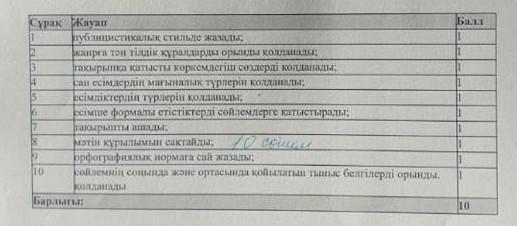 Сұрақ Жауап Балл
1 публицистикалық стильде жазады; 1
2 жанрға тән тілдік құралдарды орынды қолданады; 1
3 тақырыпқа қатысты көркемдегіш сөздерді қолданады; 1
4 сан есімдердің мағыналық түрлерін қолданады; 1
5 есімдіктердің түрлерін қолданады; 1
6 есімше формалы етістіктерді сөйлемдерге қатыстырады; 1
7 тақырыпты ашады; 1
8 мәтін құрылымын сақтайды; 10 сөйлем 1
9 орфографиялық нормаға сай жазады; 1
10 сөйлемнің соңында және ортасында қойылатын тыныс белгілерді орынды. 1
қолданады
Барлығы: 10